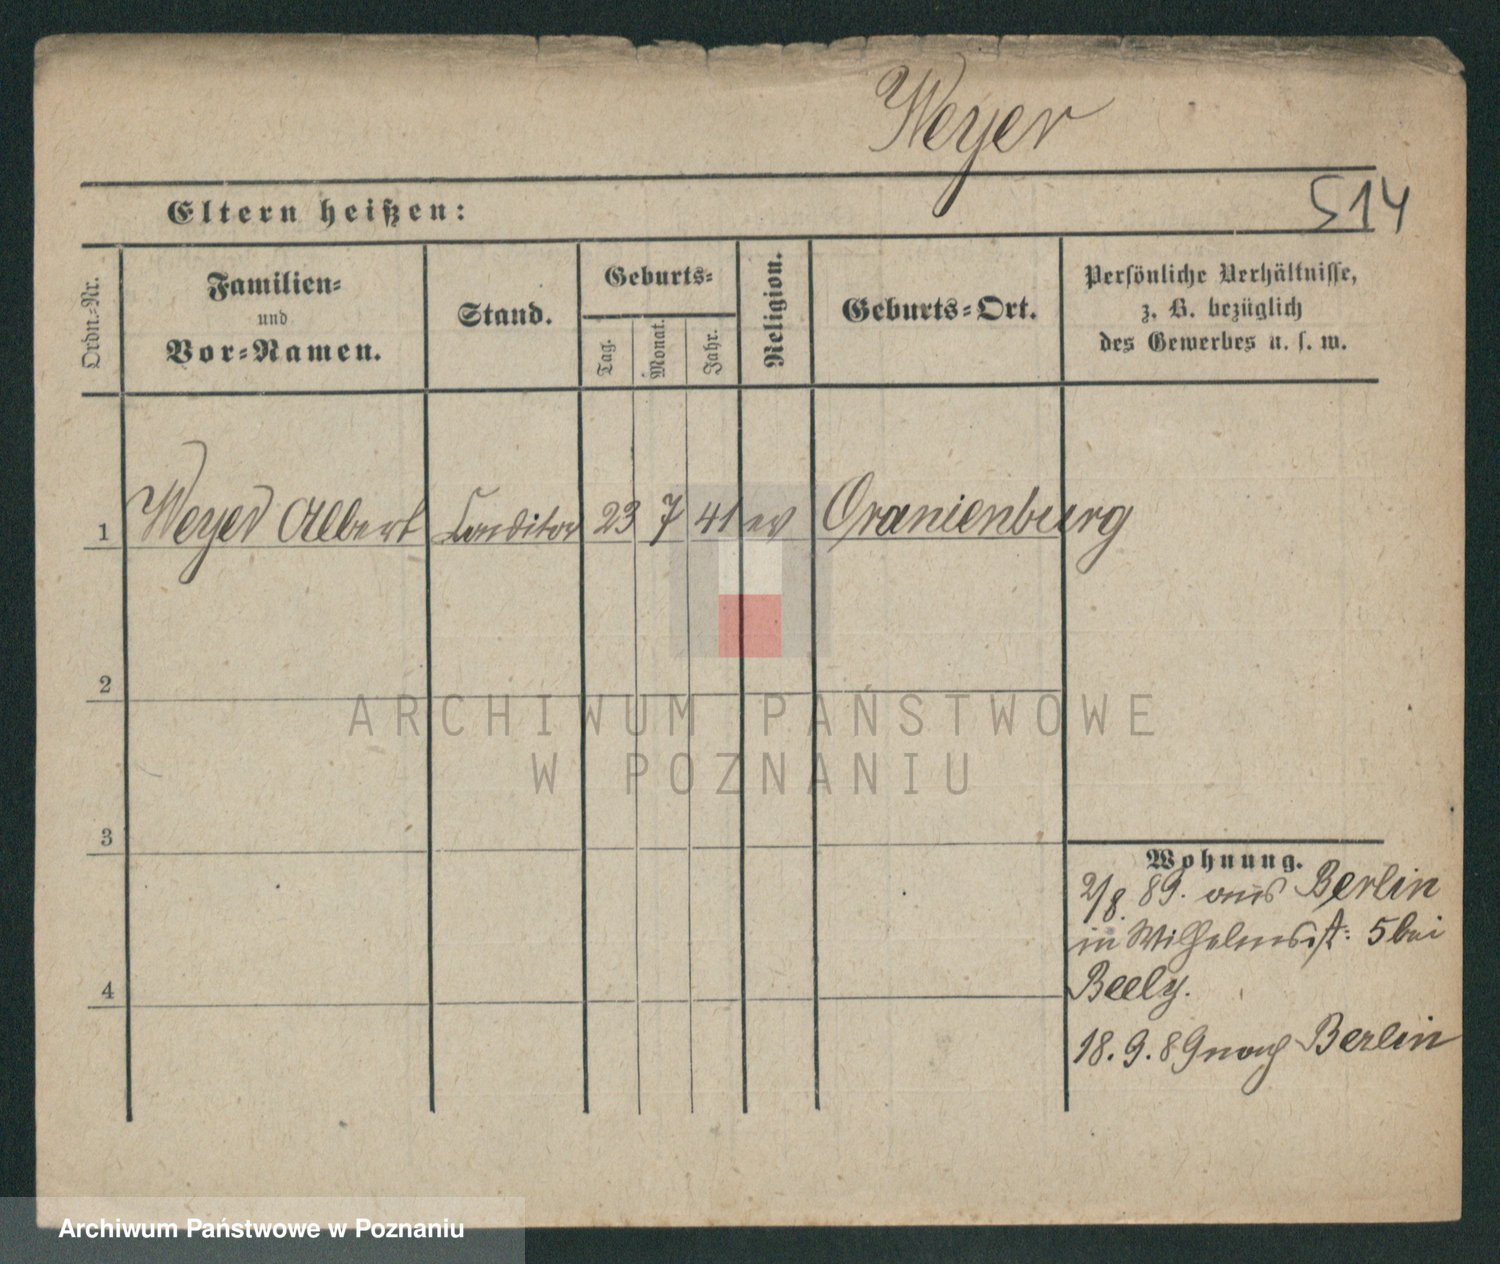 Weyer
514
Eltern heißen:
Ordn.-Nr.
Familien-
und
Vor-Namen.
Stand.
Geburts-
Tag.
Monat.
Jahr.
Religion.
Geburts-Ort.
Persönliche Verhältnisse,
z. B. bezüglich
des Gewerbes u. s. w.
1 Weyer Albert Conditor 23 7 41 ev Oranienburg
2
ARCHIWUM PAŃSTWOWE
W POZNANIU
3
Wohnung.
2/8. 89. aus Berlin
in Wilhelmsst: 5 bei
Beely.
4
18. 9. 89 nach Berlin
Archiwum Państwowe w Poznaniu